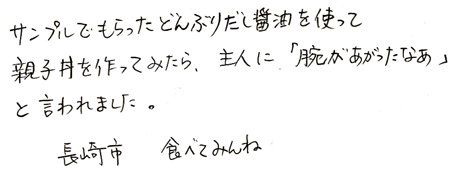 サンプルでもらったどんぶりだし醤油を使って
親子丼を作ってみたら、主人に「腕があがったなあ」
と言われました。
長崎市　食べてみんね